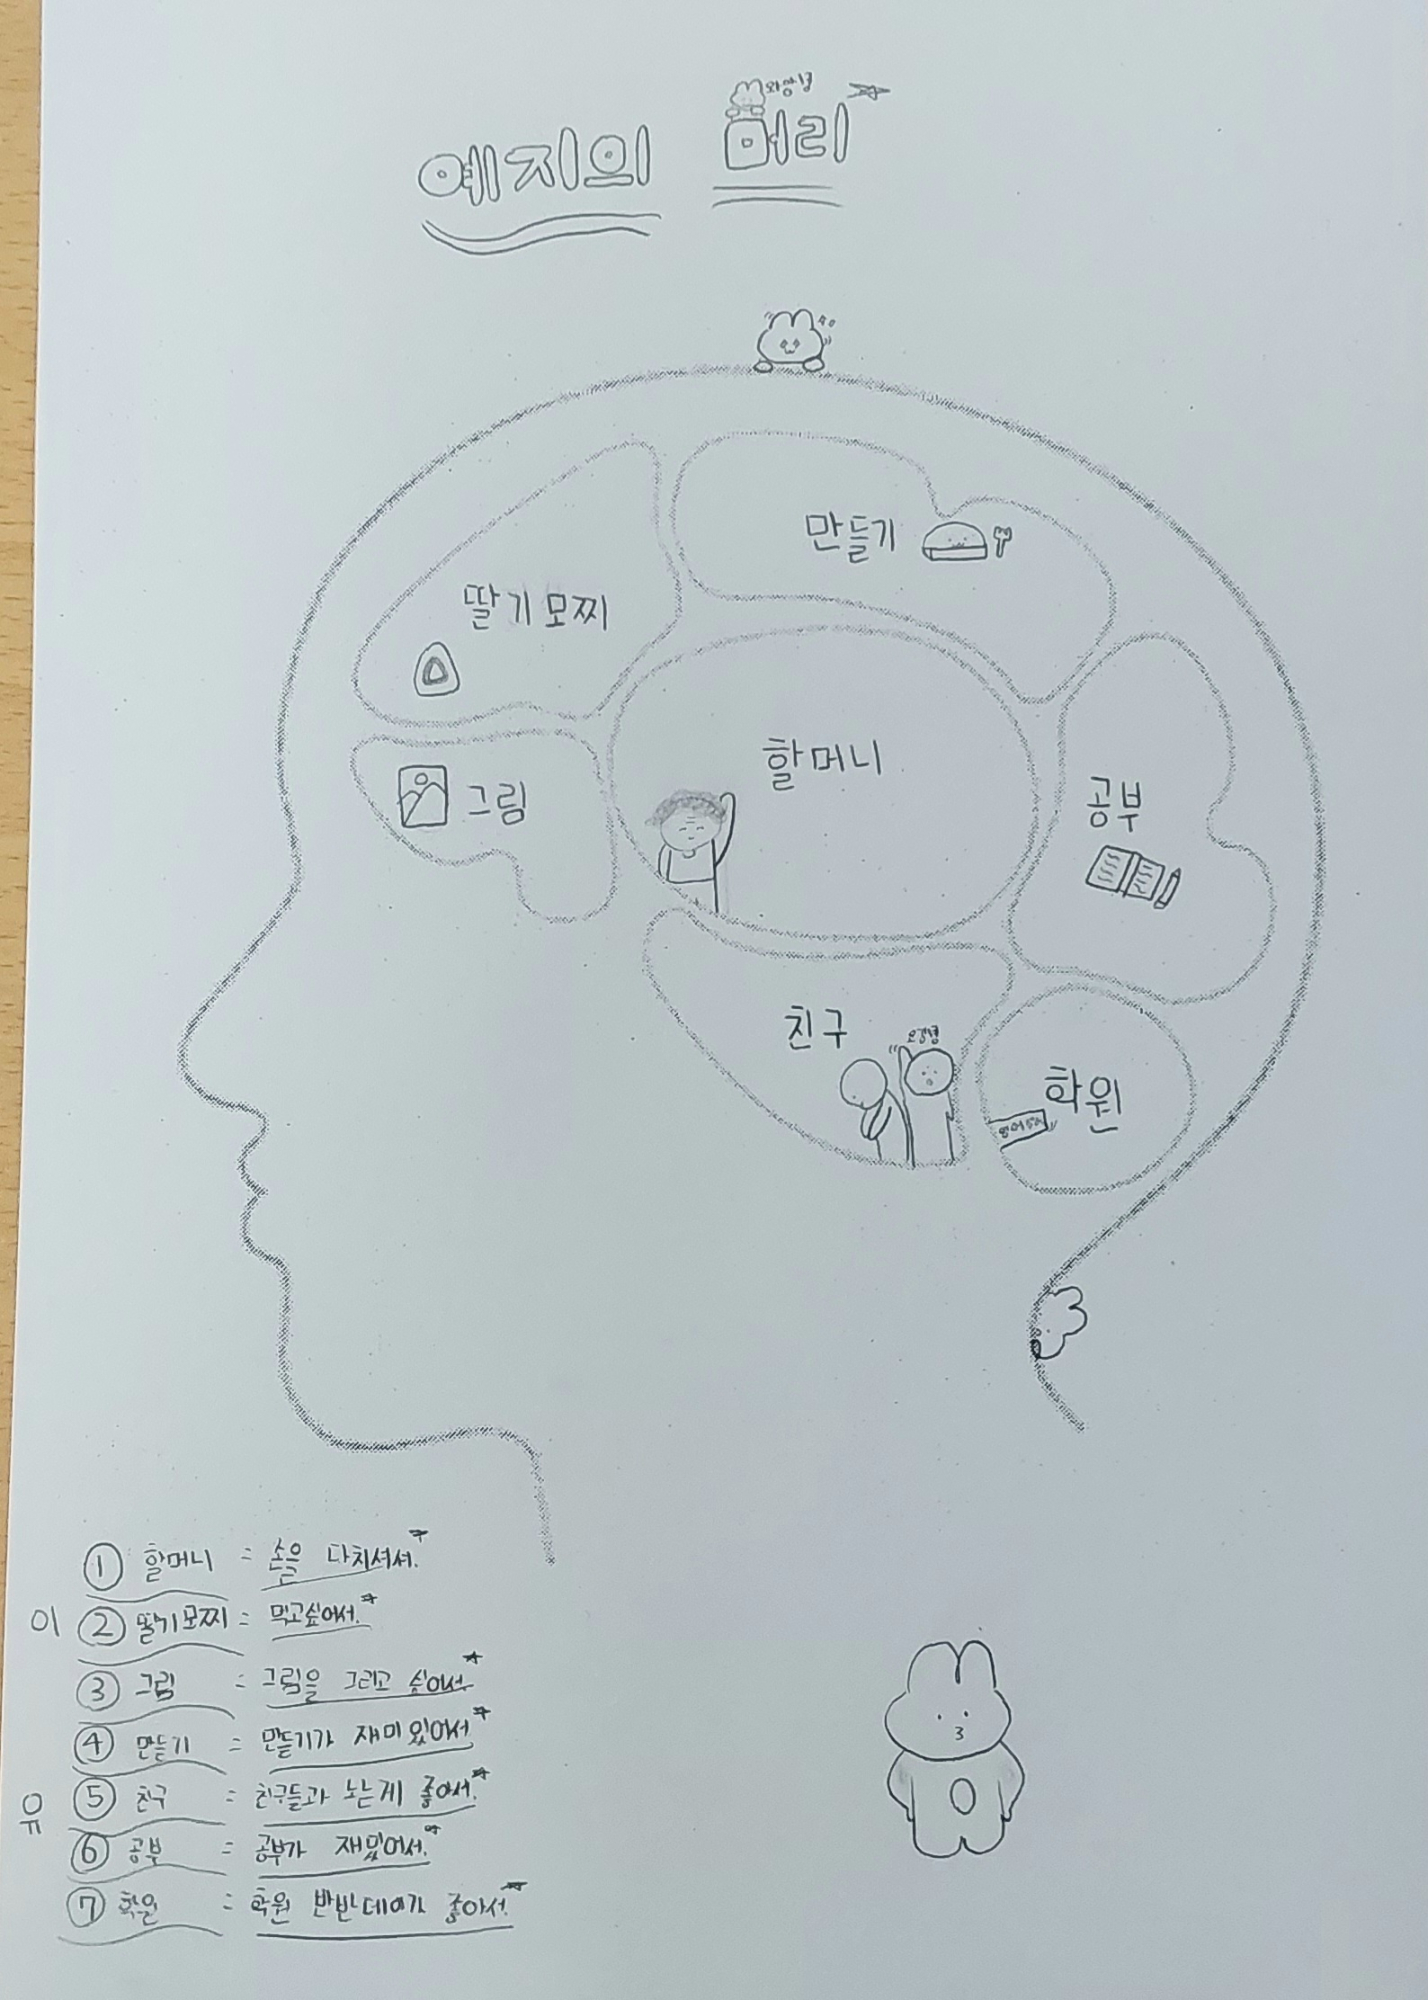 예지의 머리
딸기모찌
만들기
그림
할머니
공부
친구
학원
① 할머니 = 손을 다치셔서.
이
② 딸기모찌 = 먹고싶어서.
③ 그림 = 그림을 그리고 싶어서
④ 만들기 = 만들기가 재미있어서
유
⑤ 친구 = 친구들과 노는게 좋아서.
⑥ 공부 = 공부가 재밌어서.
⑦ 학원 = 학원 반반데이가 좋아서.